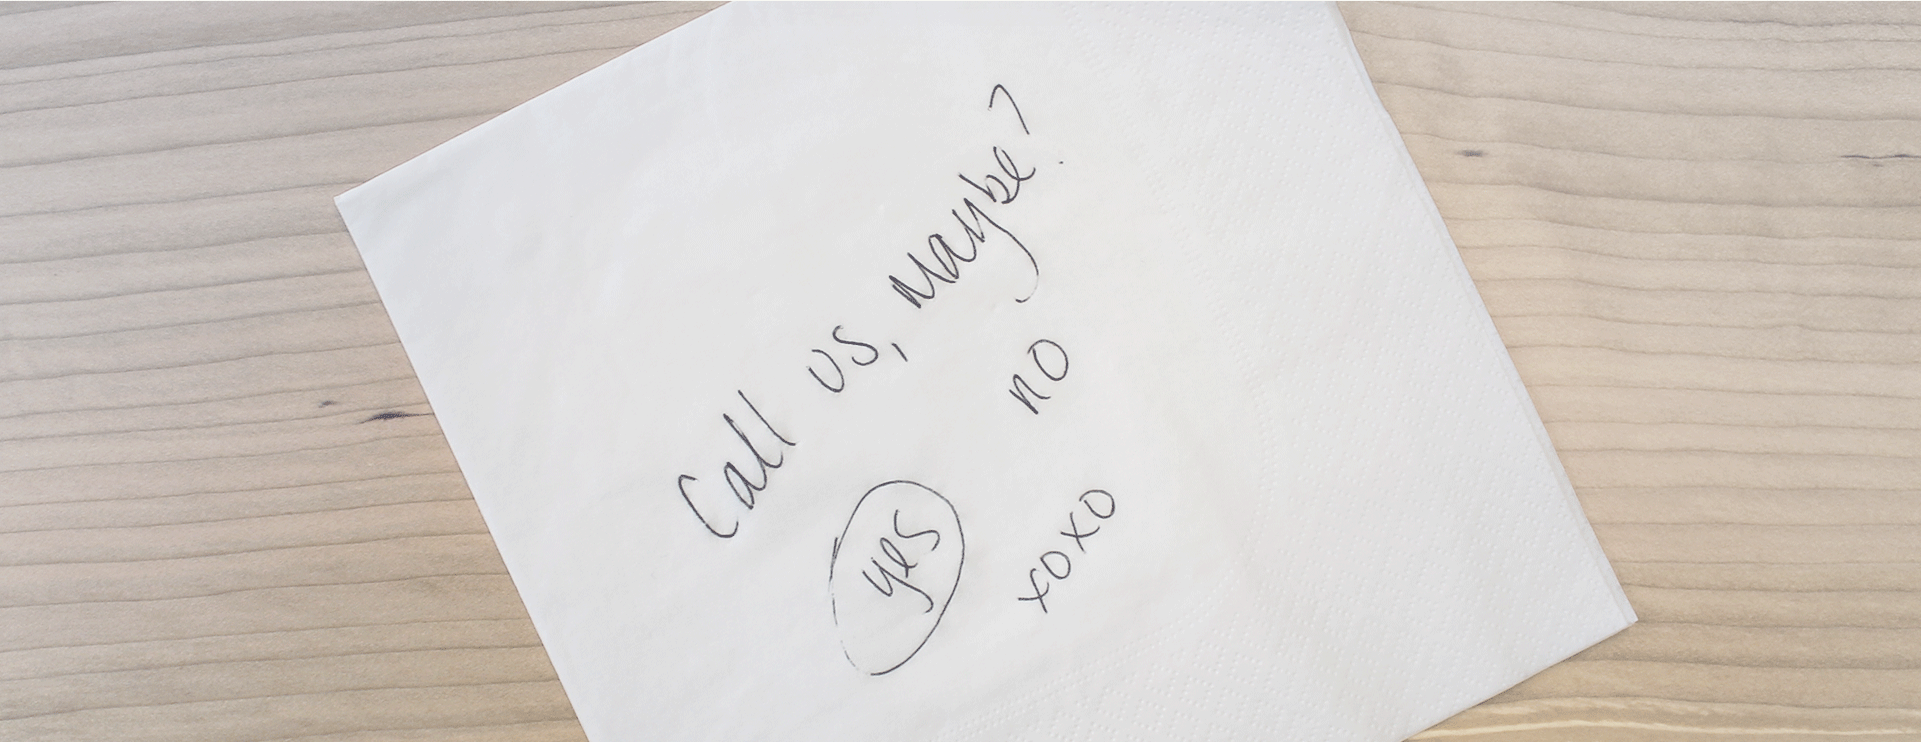 Call us, maybe?
yes no
xoxo